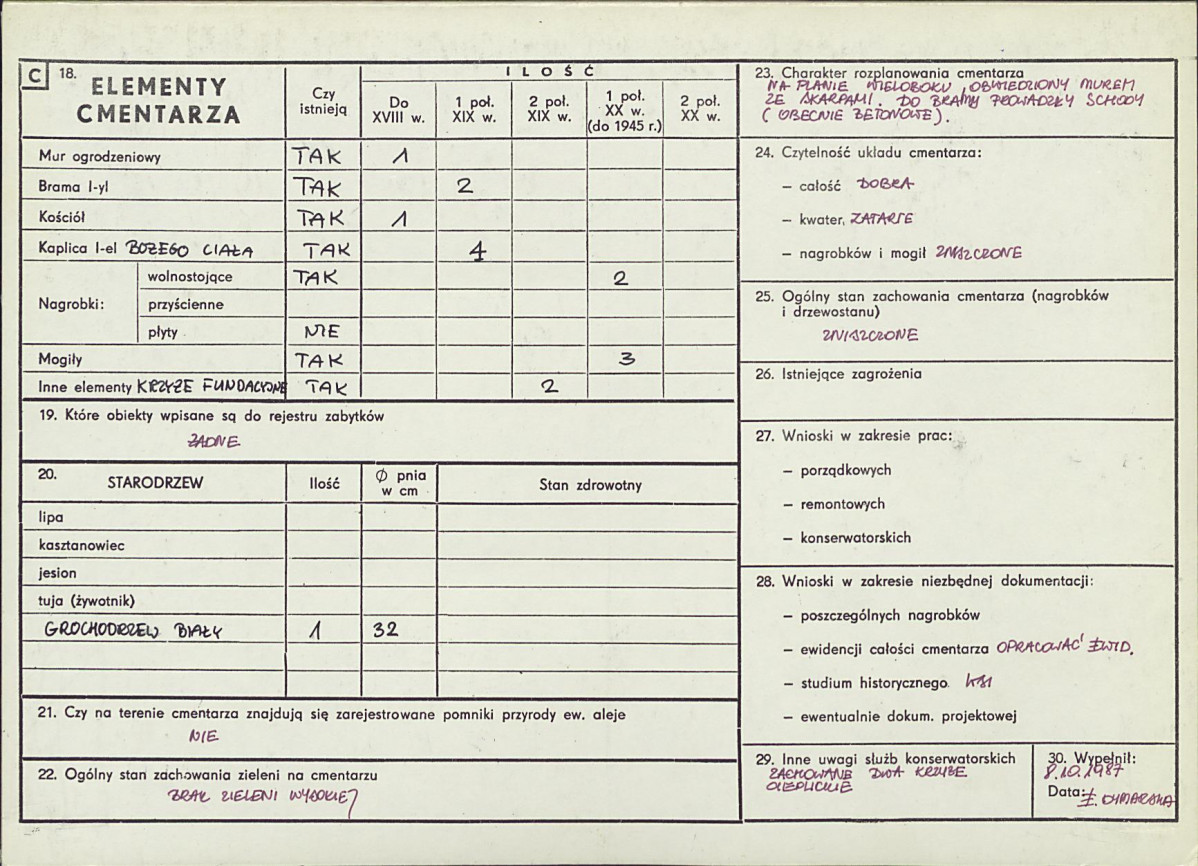 C 18. ELEMENTY CMENTARZA
Czy istnieją
ILOŚĆ
Do XVIII w.
1 poł. XIX w.
2 poł. XIX w.
1 poł. XX w. (do 1945 r.)
2 poł. XX w.
Mur ogrodzeniowy TAK 1
Brama l-yl TAK 2
Kościół TAK 1
Kaplica l-el BOŻEGO CIAŁA TAK 4
Nagrobki:
wolnostojące TAK 2
przyścienne
płyty NIE
Mogiły TAK 3
Inne elementy KRZYŻE FUNDACYJNE TAK 2
19. Które obiekty wpisane są do rejestru zabytków
ŻADNE
20. STARODRZEW Ilość Ø pnia w cm Stan zdrowotny
lipa
kasztanowiec
jesion
tuja (żywotnik)
GROCHODRZEW BIAŁY 1 32
21. Czy na terenie cmentarza znajdują się zarejestrowane pomniki przyrody ew. aleje
NIE
22. Ogólny stan zachowania zieleni na cmentarzu
BRAK ZIELENI WYSOKIEJ
23. Charakter rozplanowania cmentarza
NA PLANIE WIELOBOKU, OBWIEDZIONY MUREM
ZE SKARPAMI. DO BRAMY PROWADZIŁY SCHODY
(OBECNIE BETONOWE).
24. Czytelność układu cmentarza:
– całość DOBRA
– kwater, ZATARTE
– nagrobków i mogił ZNISZCZONE
25. Ogólny stan zachowania cmentarza (nagrobków
i drzewostanu)
ZNISZCZONE
26. Istniejące zagrożenia
27. Wnioski w zakresie prac:
– porządkowych
– remontowych
– konserwatorskich
28. Wnioski w zakresie niezbędnej dokumentacji:
– poszczególnych nagrobków
– ewidencji całości cmentarza OPRACOWAĆ EWID.
– studium historycznego
– ewentualnie dokum. projektowej
29. Inne uwagi służb konserwatorskich
ZACHOWANE DWA KRZYŻE
30. Wypełnił:
8.10.1987
Data: